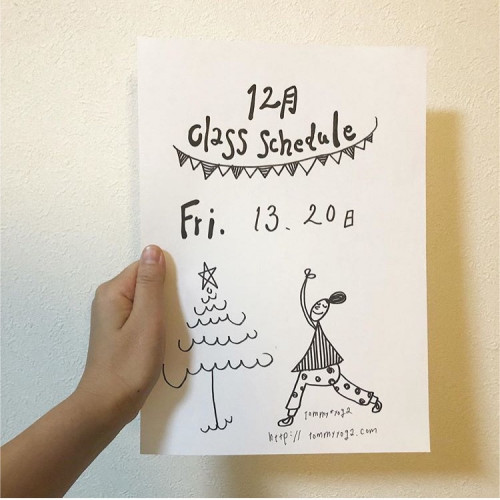 12月
class schedule
Fri. 13、20日
tommy★yoga
http:// tommyyoga.com